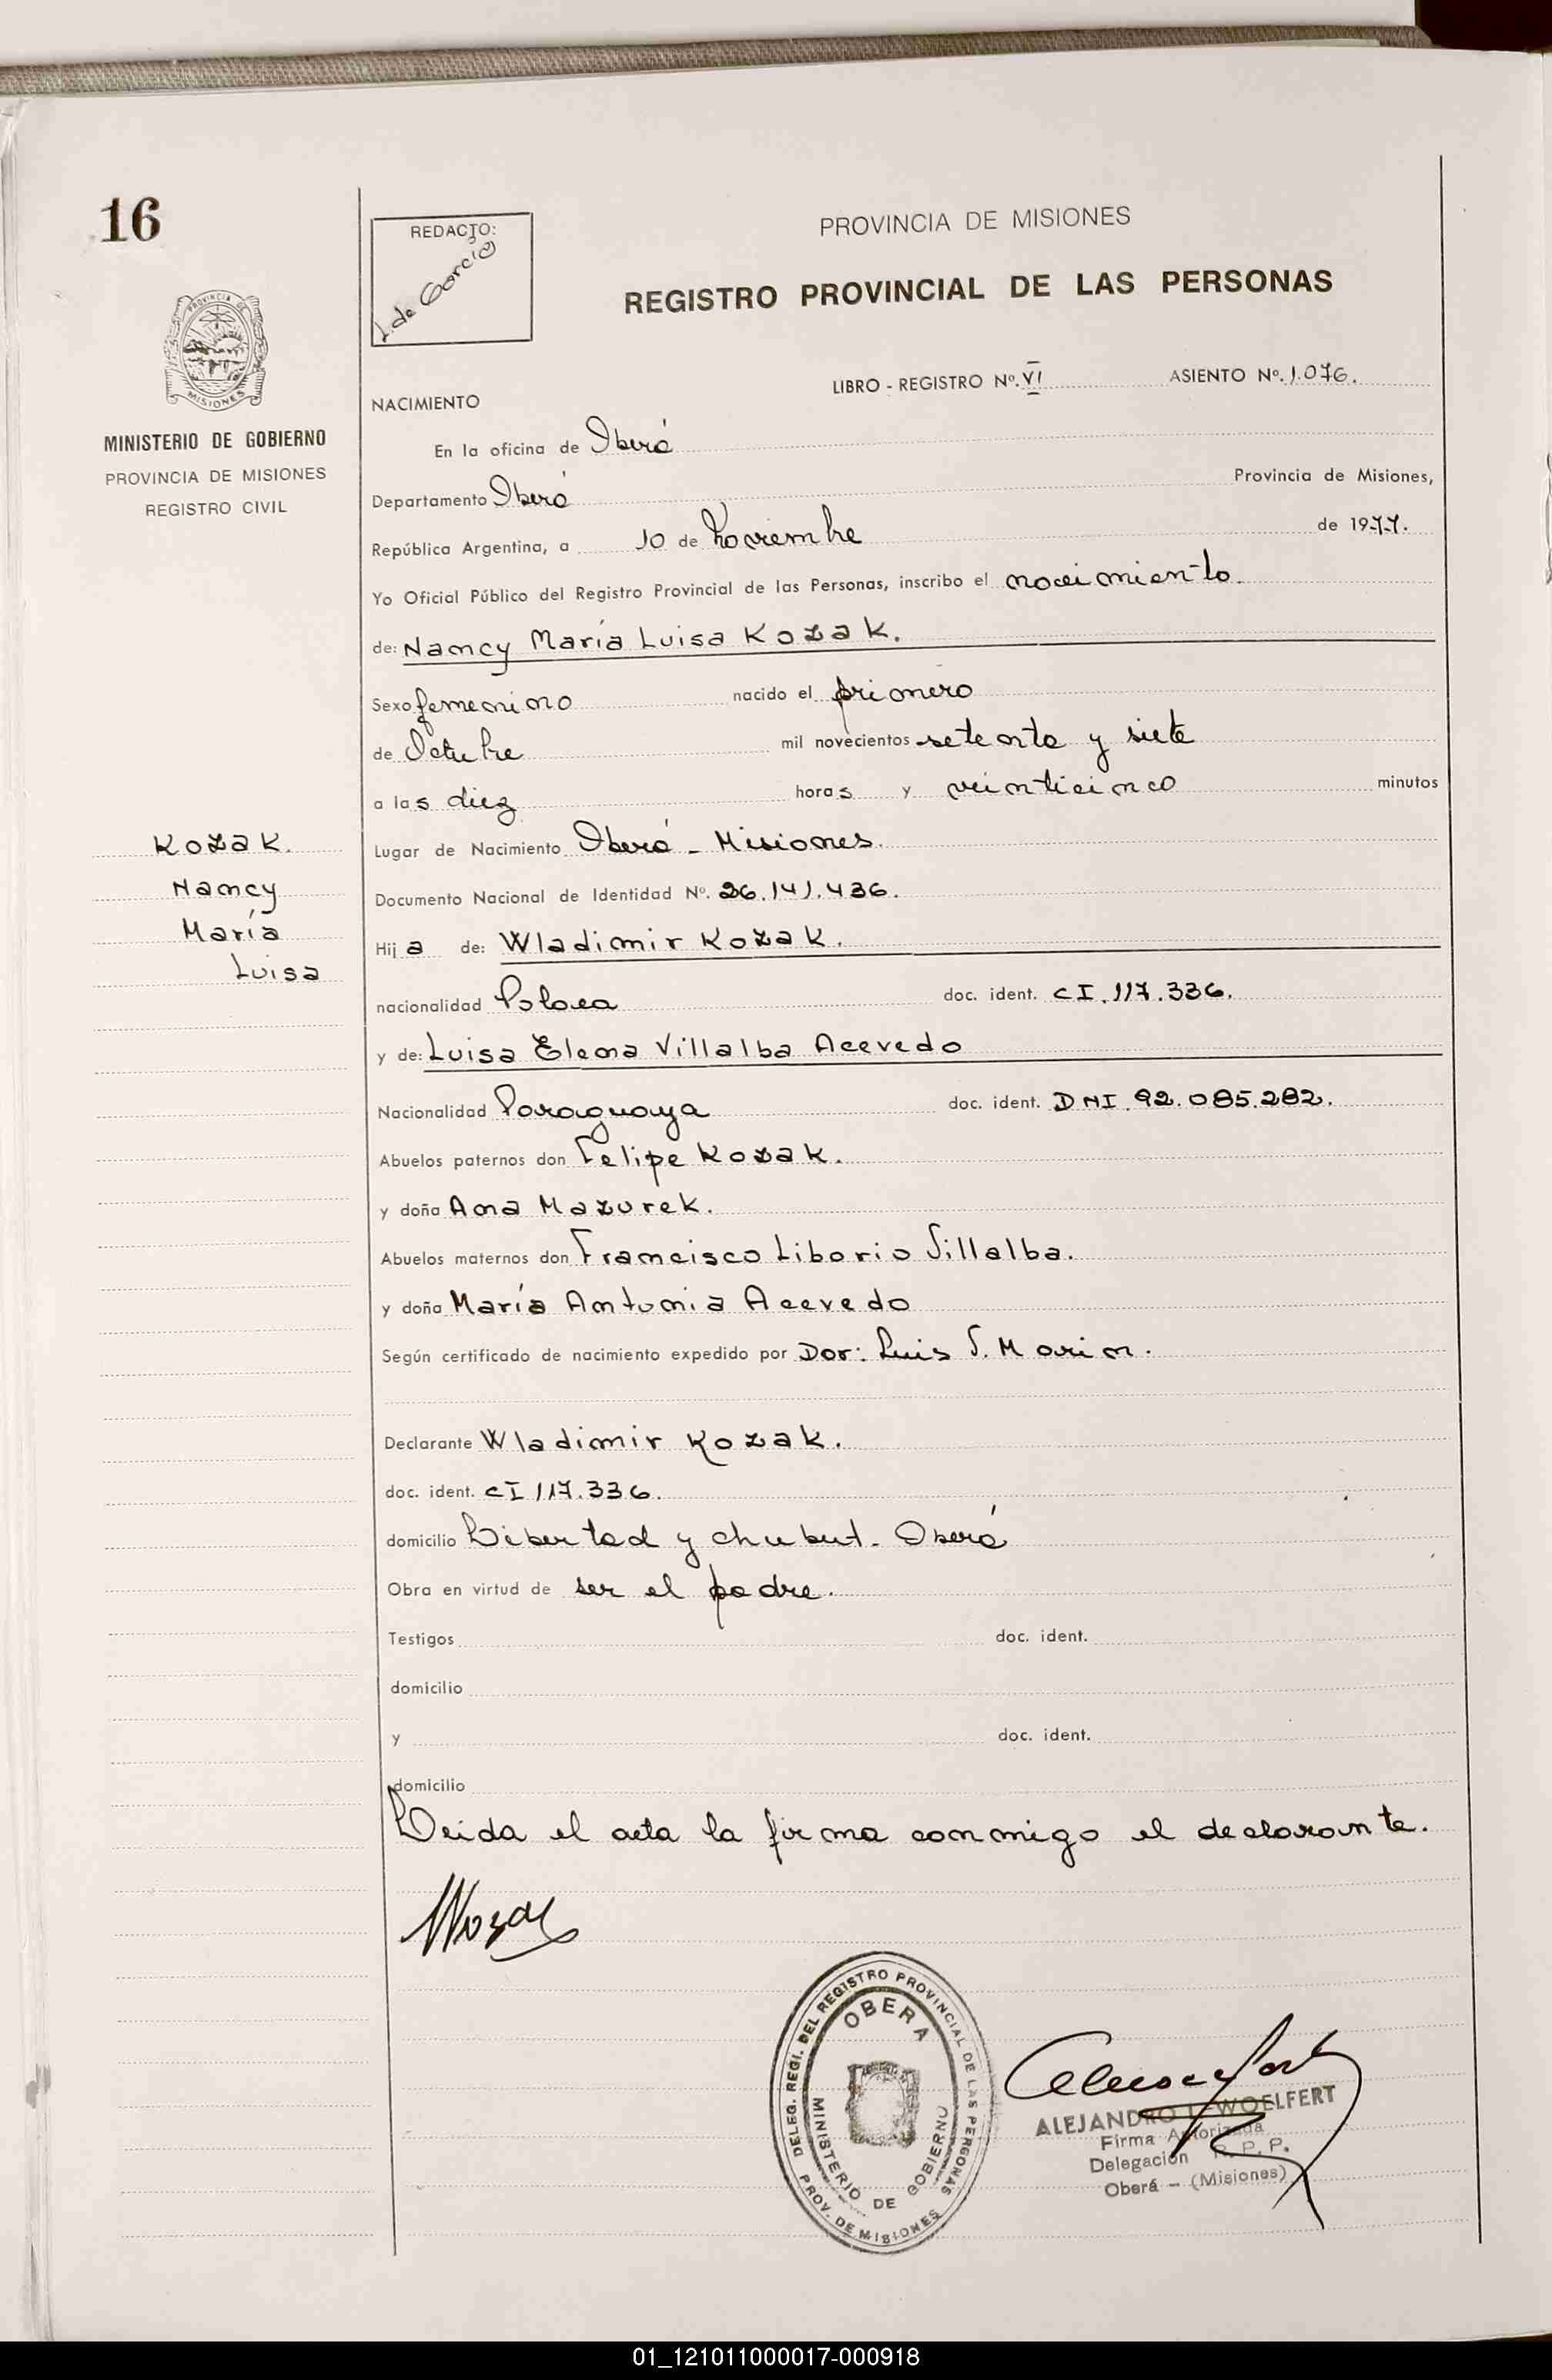 16
REDACTO:
L. de Garcia
PROVINCIA DE MISIONES
REGISTRO PROVINCIAL DE LAS PERSONAS
PROVINCIA DE
MISIONES
MINISTERIO DE GOBIERNO
PROVINCIA DE MISIONES
REGISTRO CIVIL
LIBRO - REGISTRO Nº. VI ASIENTO Nº. 1.076.
NACIMIENTO
En la oficina de Oberá
Departamento Oberá Provincia de Misiones,
República Argentina, a 10 de Noviembre de 1977.
Yo Oficial Público del Registro Provincial de las Personas, inscribo el nacimiento
de: Nancy María Luisa Kozak.
Sexo femenino nacido el primero
de Octubre mil novecientos setenta y siete
a las diez horas y veinticinco minutos
Lugar de Nacimiento Oberá - Misiones.
Documento Nacional de Identidad Nº. 26.141.436.
Hija de: Wladimir Kozak.
nacionalidad Polaca doc. ident. CI. 117.336.
y de: Luisa Elena Villalba Acevedo
Nacionalidad Paraguaya doc. ident. DNI. 92.085.282.
Abuelos paternos don Felipe Kozak.
y doña Ana Mazurek.
Abuelos maternos don Francisco Liborio Villalba.
y doña María Antonia Acevedo
Según certificado de nacimiento expedido por Dor: Luis V. Marin.
Kozak.
Nancy
María
Luisa
Declarante Wladimir Kozak.
doc. ident. CI 117.336.
domicilio Libertad y Chubut - Oberá
Obra en virtud de ser el padre.
Testigos doc. ident.
domicilio
y doc. ident.
domicilio
Leida el acta la firma conmigo el declarante.
DELEG. REGI. DEL REGISTRO PROVINCIAL DE LAS PERSONAS
PROV. DE MISIONES
OBERA
MINISTERIO DE GOBIERNO
ALEJANDRO L. WOELFERT
Firma Autorizada
Delegación R. P. P.
Oberá - (Misiones)
01_121011000017-000918